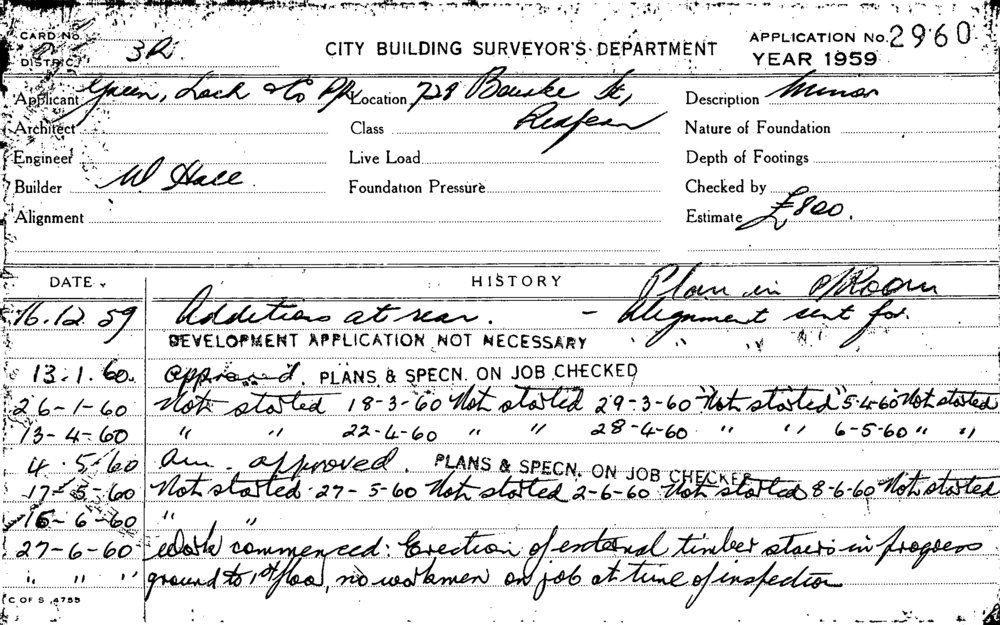 CARD No.
DISTRICT 3R.
CITY BUILDING SURVEYOR'S DEPARTMENT
APPLICATION No. 2960
YEAR 1959
Applicant Green, Lock & Co P/L Location 728 Bourke St, Redfern Description Minor
Architect Class Nature of Foundation
Engineer Live Load Depth of Footings
Builder W Hall Foundation Pressure Checked by
Alignment Estimate £800.
DATE HISTORY Plan in P/Room
16.12.59 Additions at rear. - Alignment sent for.
DEVELOPMENT APPLICATION NOT NECESSARY " " "
13.1.60. approved. PLANS & SPECN. ON JOB CHECKED
26-1-60 Not started 18-3-60 Not started 29-3-60 Not started 5-4-60 Not started
13-4-60 " " 22-4-60 " " 28-4-60 " " 6-5-60 " "
4.5.60 Am. approved. PLANS & SPECN. ON JOB CHECKED
17-5-60 Not started 27-5-60 Not started 2-6-60 Not started 8-6-60 Not started
16-6-60 " "
27-6-60 Work commenced: Erection of external timber stairs in progress
" " " ground to 1st floor, no workmen on job at time of inspection
C OF S 4755